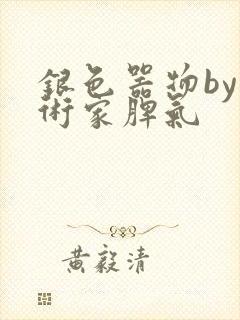 銀色器物by
術家脾氣
黃毅清